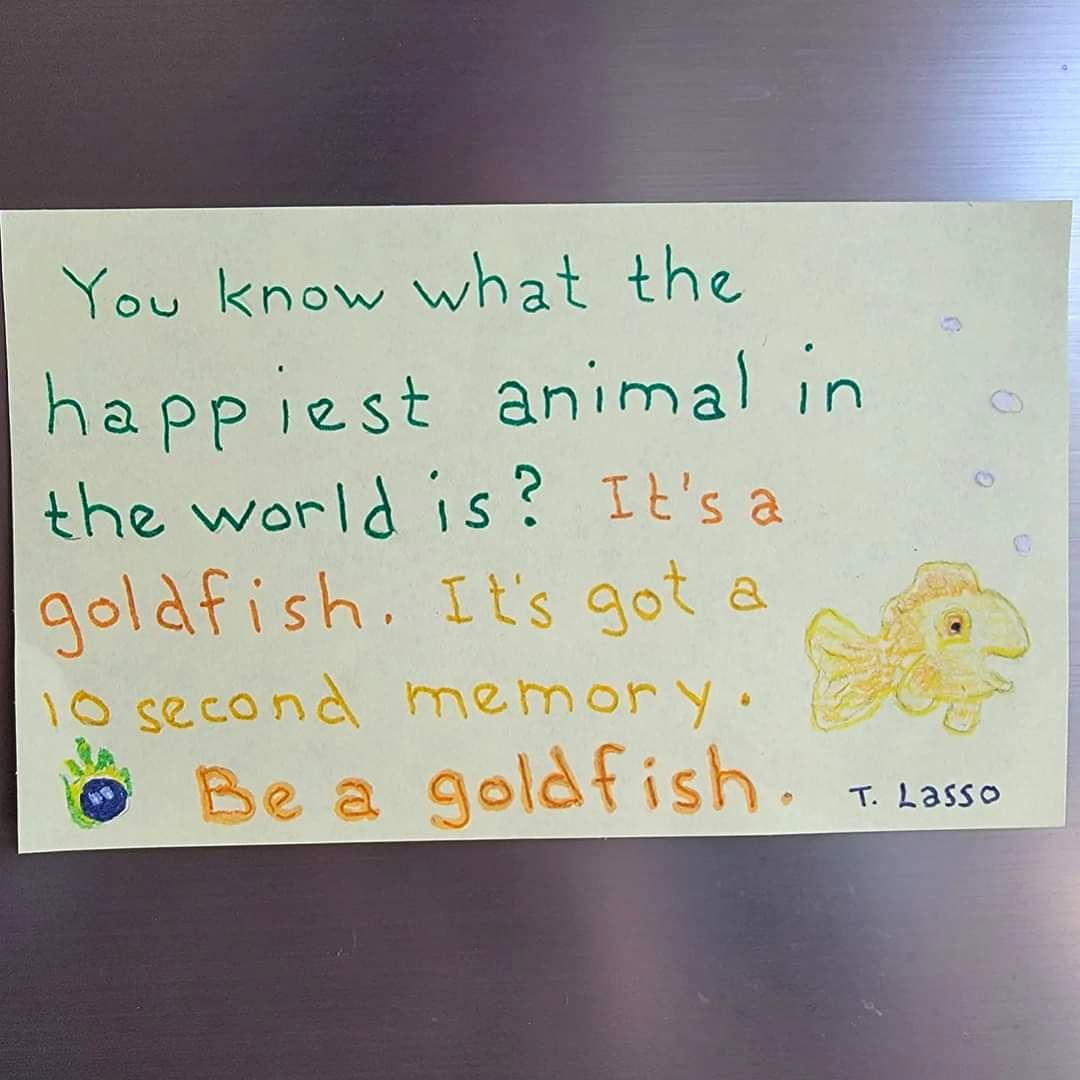 You know what the
happiest animal in
the world is? It's a
goldfish. It's got a
10 second memory.
Be a goldfish. T. Lasso